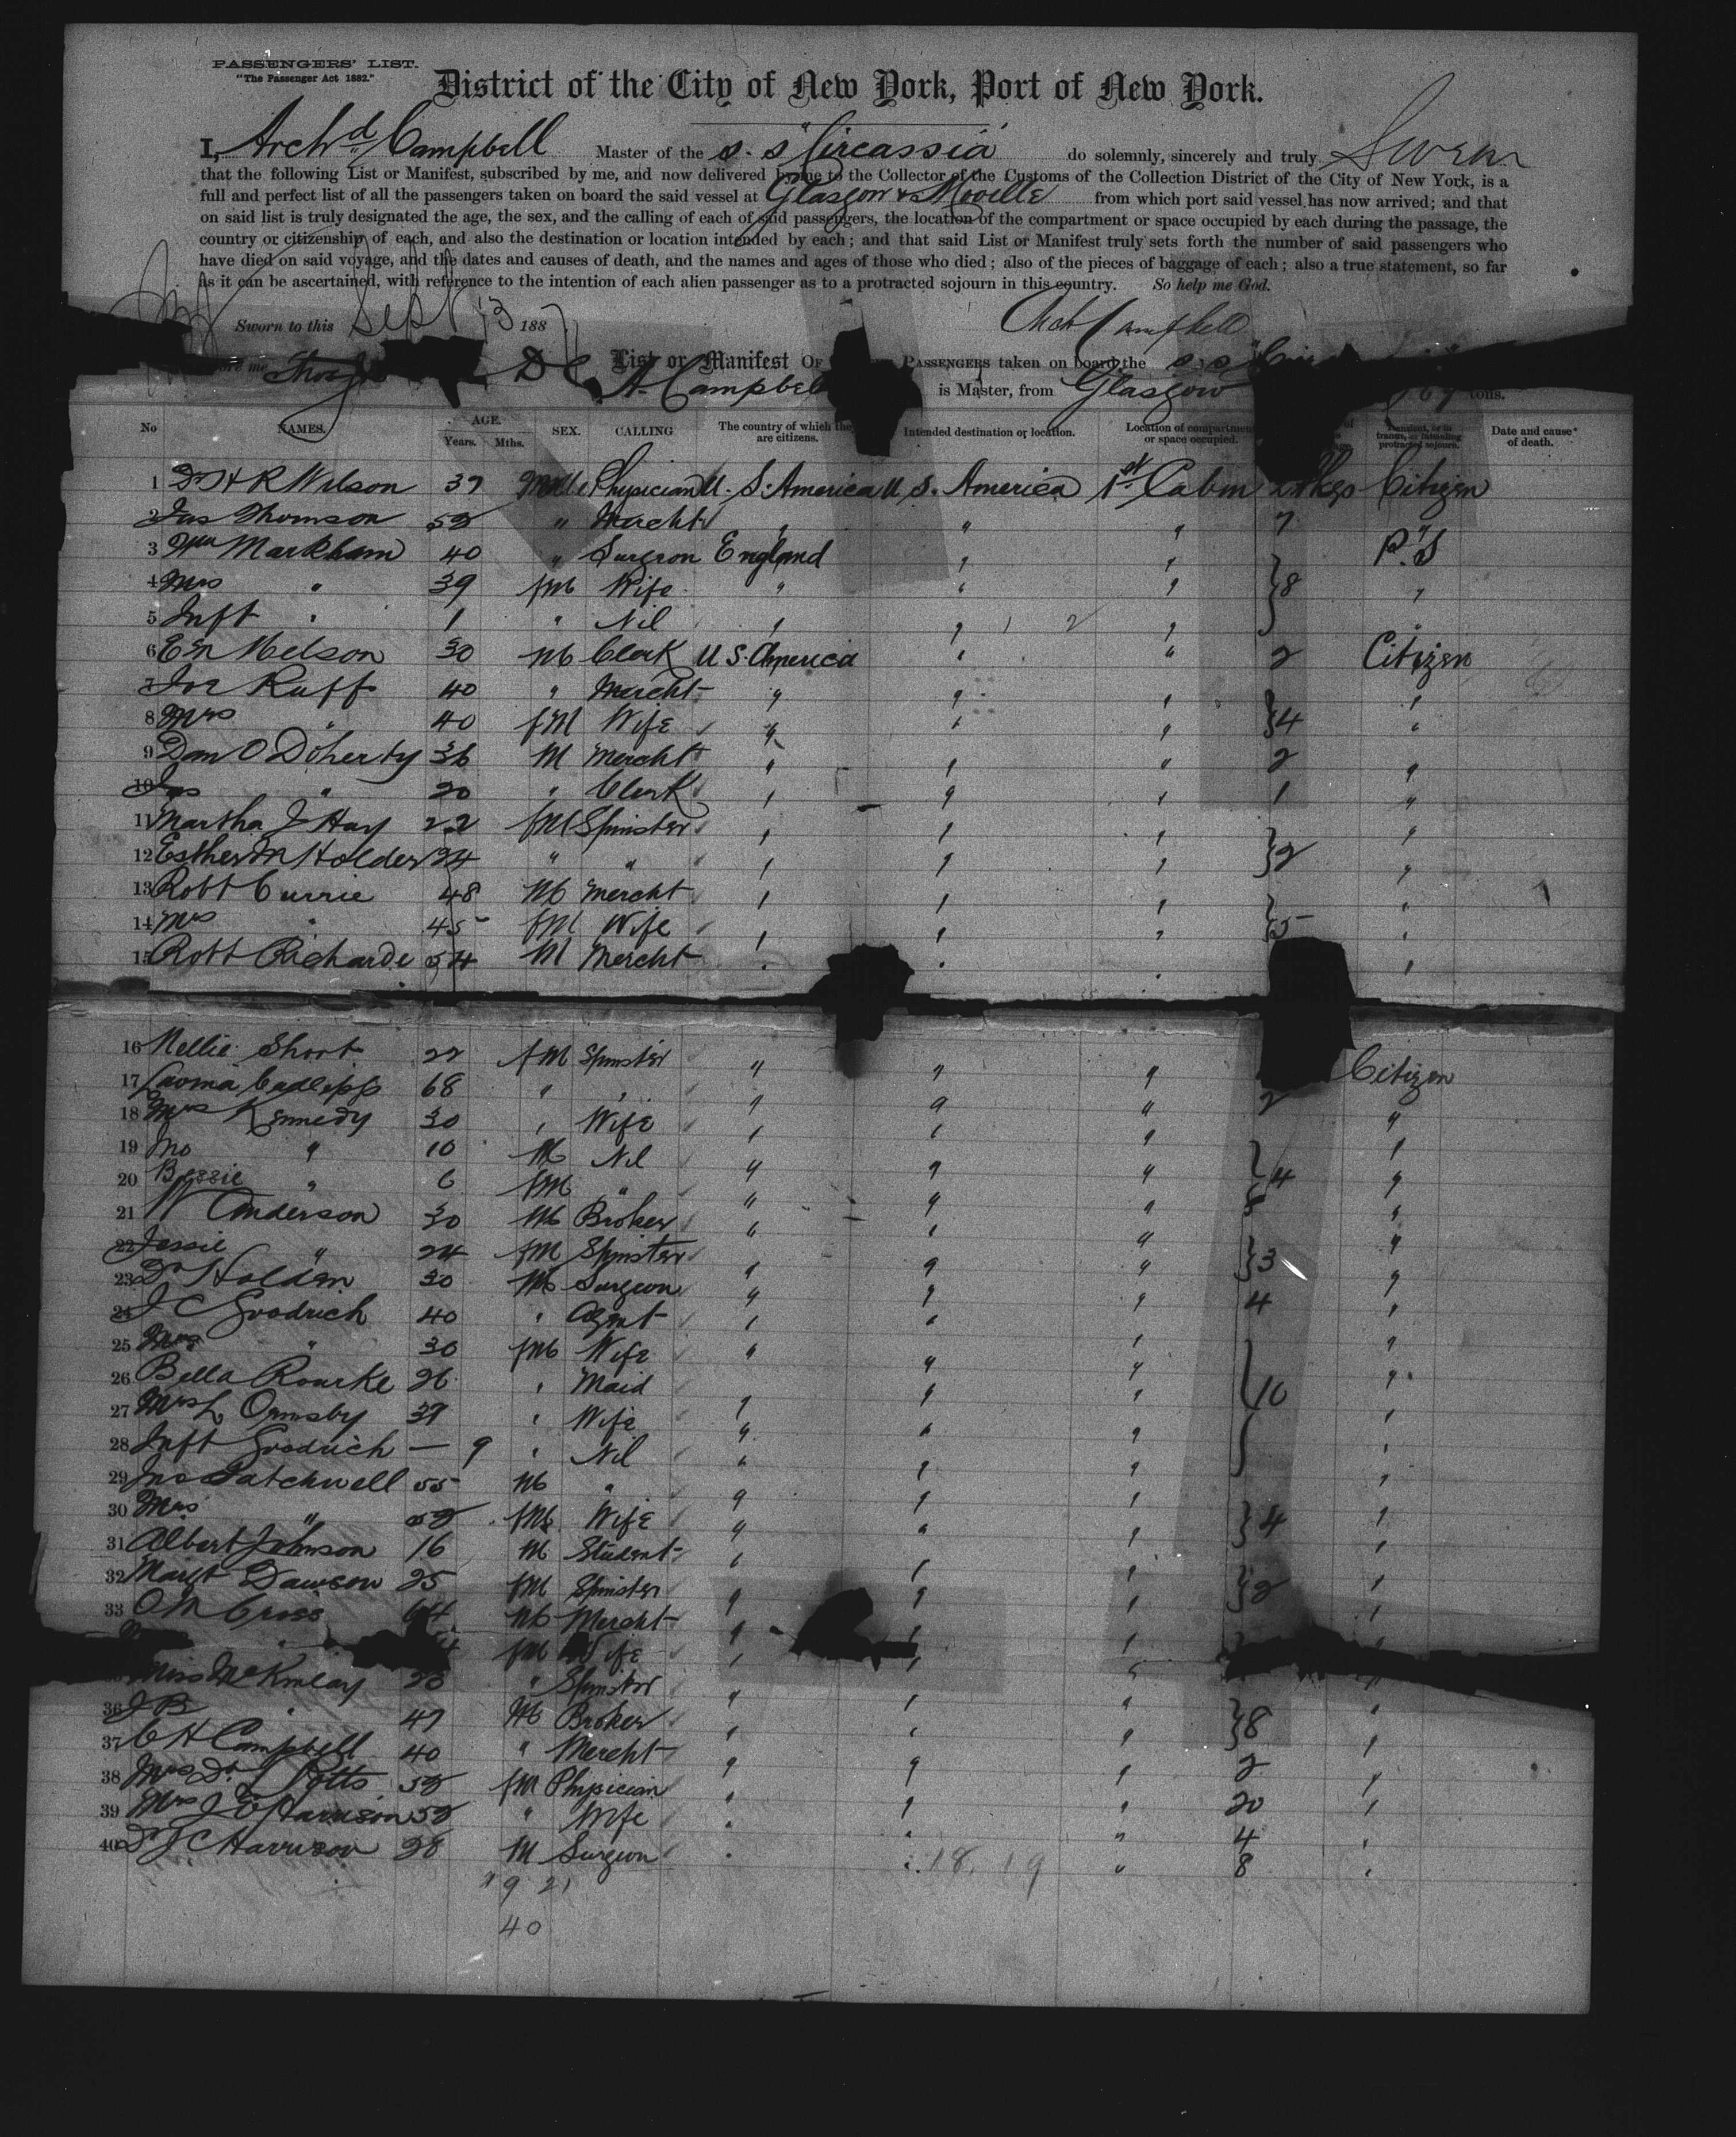 PASSENGERS' LIST.
"The Passenger Act 1882."
District of the City of New York, Port of New York.
I, Archd Campbell Master of the S. S "Circassia" do solemnly, sincerely and truly Swear
that the following List or Manifest, subscribed by me, and now delivered by me to the Collector of the Customs of the Collection District of the City of New York, is a
full and perfect list of all the passengers taken on board the said vessel at Glasgow & Moville from which port said vessel has now arrived; and that
on said list is truly designated the age, the sex, and the calling of each of said passengers, the location of the compartment or space occupied by each during the passage, the
country or citizenship of each, and also the destination or location intended by each; and that said List or Manifest truly sets forth the number of said passengers who
have died on said voyage, and the dates and causes of death, and the names and ages of those who died; also of the pieces of baggage of each; also a true statement, so far
as it can be ascertained, with reference to the intention of each alien passenger as to a protracted sojourn in this country. So help me God.
Sworn to this Sept 13 1887 Arch Campbell
List or Manifest OF PASSENGERS taken on board the S. S
A. Campbell is Master, from Glasgow tons.
No NAMES. AGE. Years. Mths. SEX. CALLING The country of which they are citizens. Intended destination or location. Location of compartment or space occupied. Date and cause of death.
1 Dr H R Wilson 37 Male Physician U. S. America U. S. America 1st Cabin Citizen
2 Jas Thomson 52 " Mercht " " " 7 "
3 Wm Markham 40 " Surgeon England " " P. S
4 Mrs " 39 fM Wife " " " } 8 "
5 Inft " 1 " Nil " " " "
6 E M Nelson 30 M Clerk U S. America " " 2 Citizen
7 Jos Ruff 40 " Mercht " " " "
8 Mrs " 40 fM Wife " " " } 4 "
9 Dan O Doherty 36 M Mercht " " " 2 "
10 Jas " 20 " Clerk " " " 1 "
11 Martha J Hay 22 fM Spinster " " " "
12 Esther M Holder 24 " " " " " } 2 "
13 Robt Currie 48 M Mercht " " " "
14 Mrs " 45 fM Wife " " " } 5 "
15 Robt Richards 54 M Mercht " " " "
16 Nellie Short 22 fM Spinster " " " Citizen
17 68 " " " " " 2 "
18 Mrs Kennedy 30 " Wife " " " "
19 Jno " 10 M Nil " " " } 4 "
20 Bessie " 6 fM " " " " "
21 W Anderson 30 M Broker " " " "
22 Jessie " 24 fM Spinster " " " } 3 "
23 Dr Holden 30 M Surgeon " " " 4 "
24 J C Goodrich 40 " Agent " " " "
25 Mrs " 30 fM Wife " " " "
26 Bella Rourke 26 " Maid " " " } 10 "
27 Mrs L Ormsby 39 " Wife " " " "
28 Inft Goodrich — 9 " Nil " " " "
29 Jno Patchwell 55 M " " " " "
30 Mrs " 52 fM Wife " " " } 4 "
31 Albert Johnson 16 M Student " " " "
32 Margt Dawson 25 fM Spinster " " " } 2 "
33 O M Cross 64 M Mercht " " " "
fM Wife " " " "
Miss McKinlay 20 " Spinster " " " "
36 J B " 47 M Broker " " " } 8 "
37 C H Campbell 40 " Mercht " " " 2 "
38 Mrs Dr L Potts 52 fM Physician " " " 20 "
39 Mrs J E Harrison 52 " Wife " " " 4 "
40 Dr J C Harrison 28 M Surgeon " " " 8 "
18. 19
19 21
40